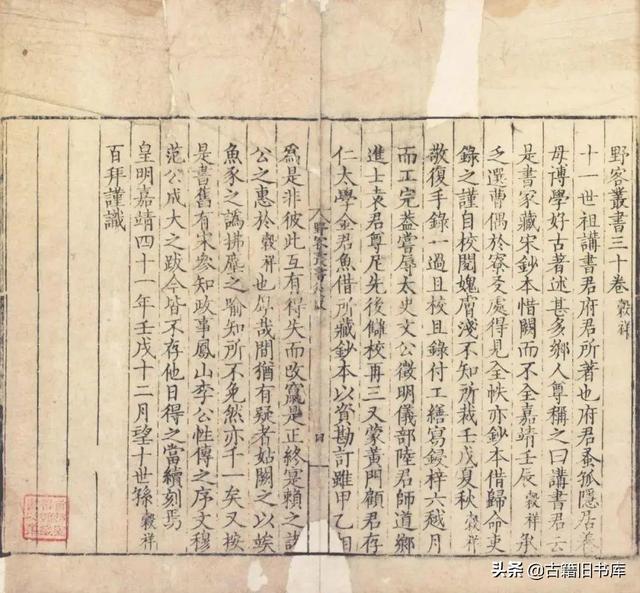 野客叢書三十卷 穀祥
十一世祖講書君府君所著也府君蚤孤隱居養
母博學好古著述甚多鄉人尊稱之曰講書君云
是書家藏宋鈔本惜闕而不全嘉靖壬辰穀祥承
乏選曹偶於寮友處得見全帙亦鈔本借歸命吏
錄之謹自校閱媿膚淺不知所裁壬戌夏秋穀祥
敬復手錄一過且校且錄付工繕寫鋟梓六越月
而工完葢嘗辱太史文公徵明儀部陸君師道鄉
進士袁君尊尼先後讎校再三又蒙黃門顧君存
仁太學金君魚借所藏鈔本以資勘訂雖甲乙相
野客叢書
四
為是非彼此互有得失而改竄是正終寔賴之諸
公之惠於穀祥也厚哉間猶有疑者姑闕之以俟
魚豕之譌拂塵之喻知所不免然亦千一矣又按
是書舊有宋參知政事鳳山李公性傳之序文穆
范公成大之跋今皆不存他日得之當續刻焉
皇明嘉靖四十一年壬戌十二月望十世孫穀祥
百拜謹識
头条 @古籍旧书库